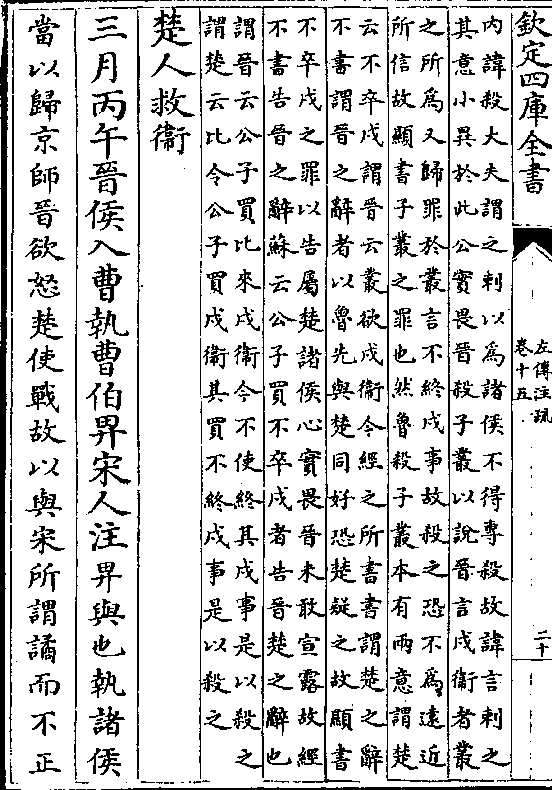 欽定四庫全書
左傳注疏
卷十五
二十
内諱殺大夫謂之刺以為諸侯不得專殺故諱言刺之
其意小異於此公實畏晉殺子叢以說晉言戍衛者叢
之所為又歸罪於叢言不終戍事故殺之恐不為遠近
所信故顯書子叢之罪也然魯殺子叢本有兩意謂楚
云不卒戍謂晉云叢欲戍衛今經之所書書謂楚之辭
不書謂晉之辭者以魯先與楚同好恐楚疑之故顯書
不卒戍之罪以告屬楚諸侯心實畏晉未敢宣露故經
不書告晉之辭蘇云公子買不卒戍者告晉楚之辭也
謂晉云公子買比來戍衛今不使終其戍事是以殺之
謂楚云比令公子買戍衛其買不終戍事是以殺之
楚人救衛
三月丙午晉侯入曹執曹伯畀宋人注畀與也執諸侯
當以歸京師晉欲怒楚使戰故以與宋所謂譎而不正